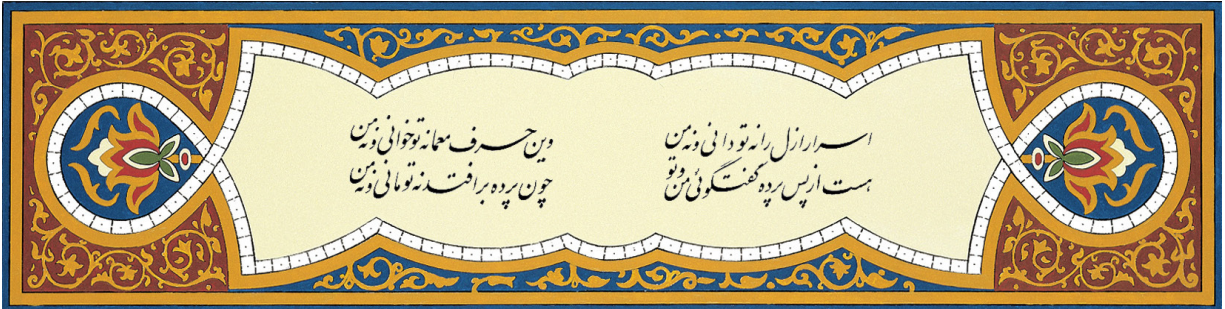 اسرار ازل را نه تو دانی و نه من
وین حرف معما نه تو خوانی و نه من
هست از پس پرده گفتگوئی من و تو
چون پرده برافتد نه تو مانی و نه من